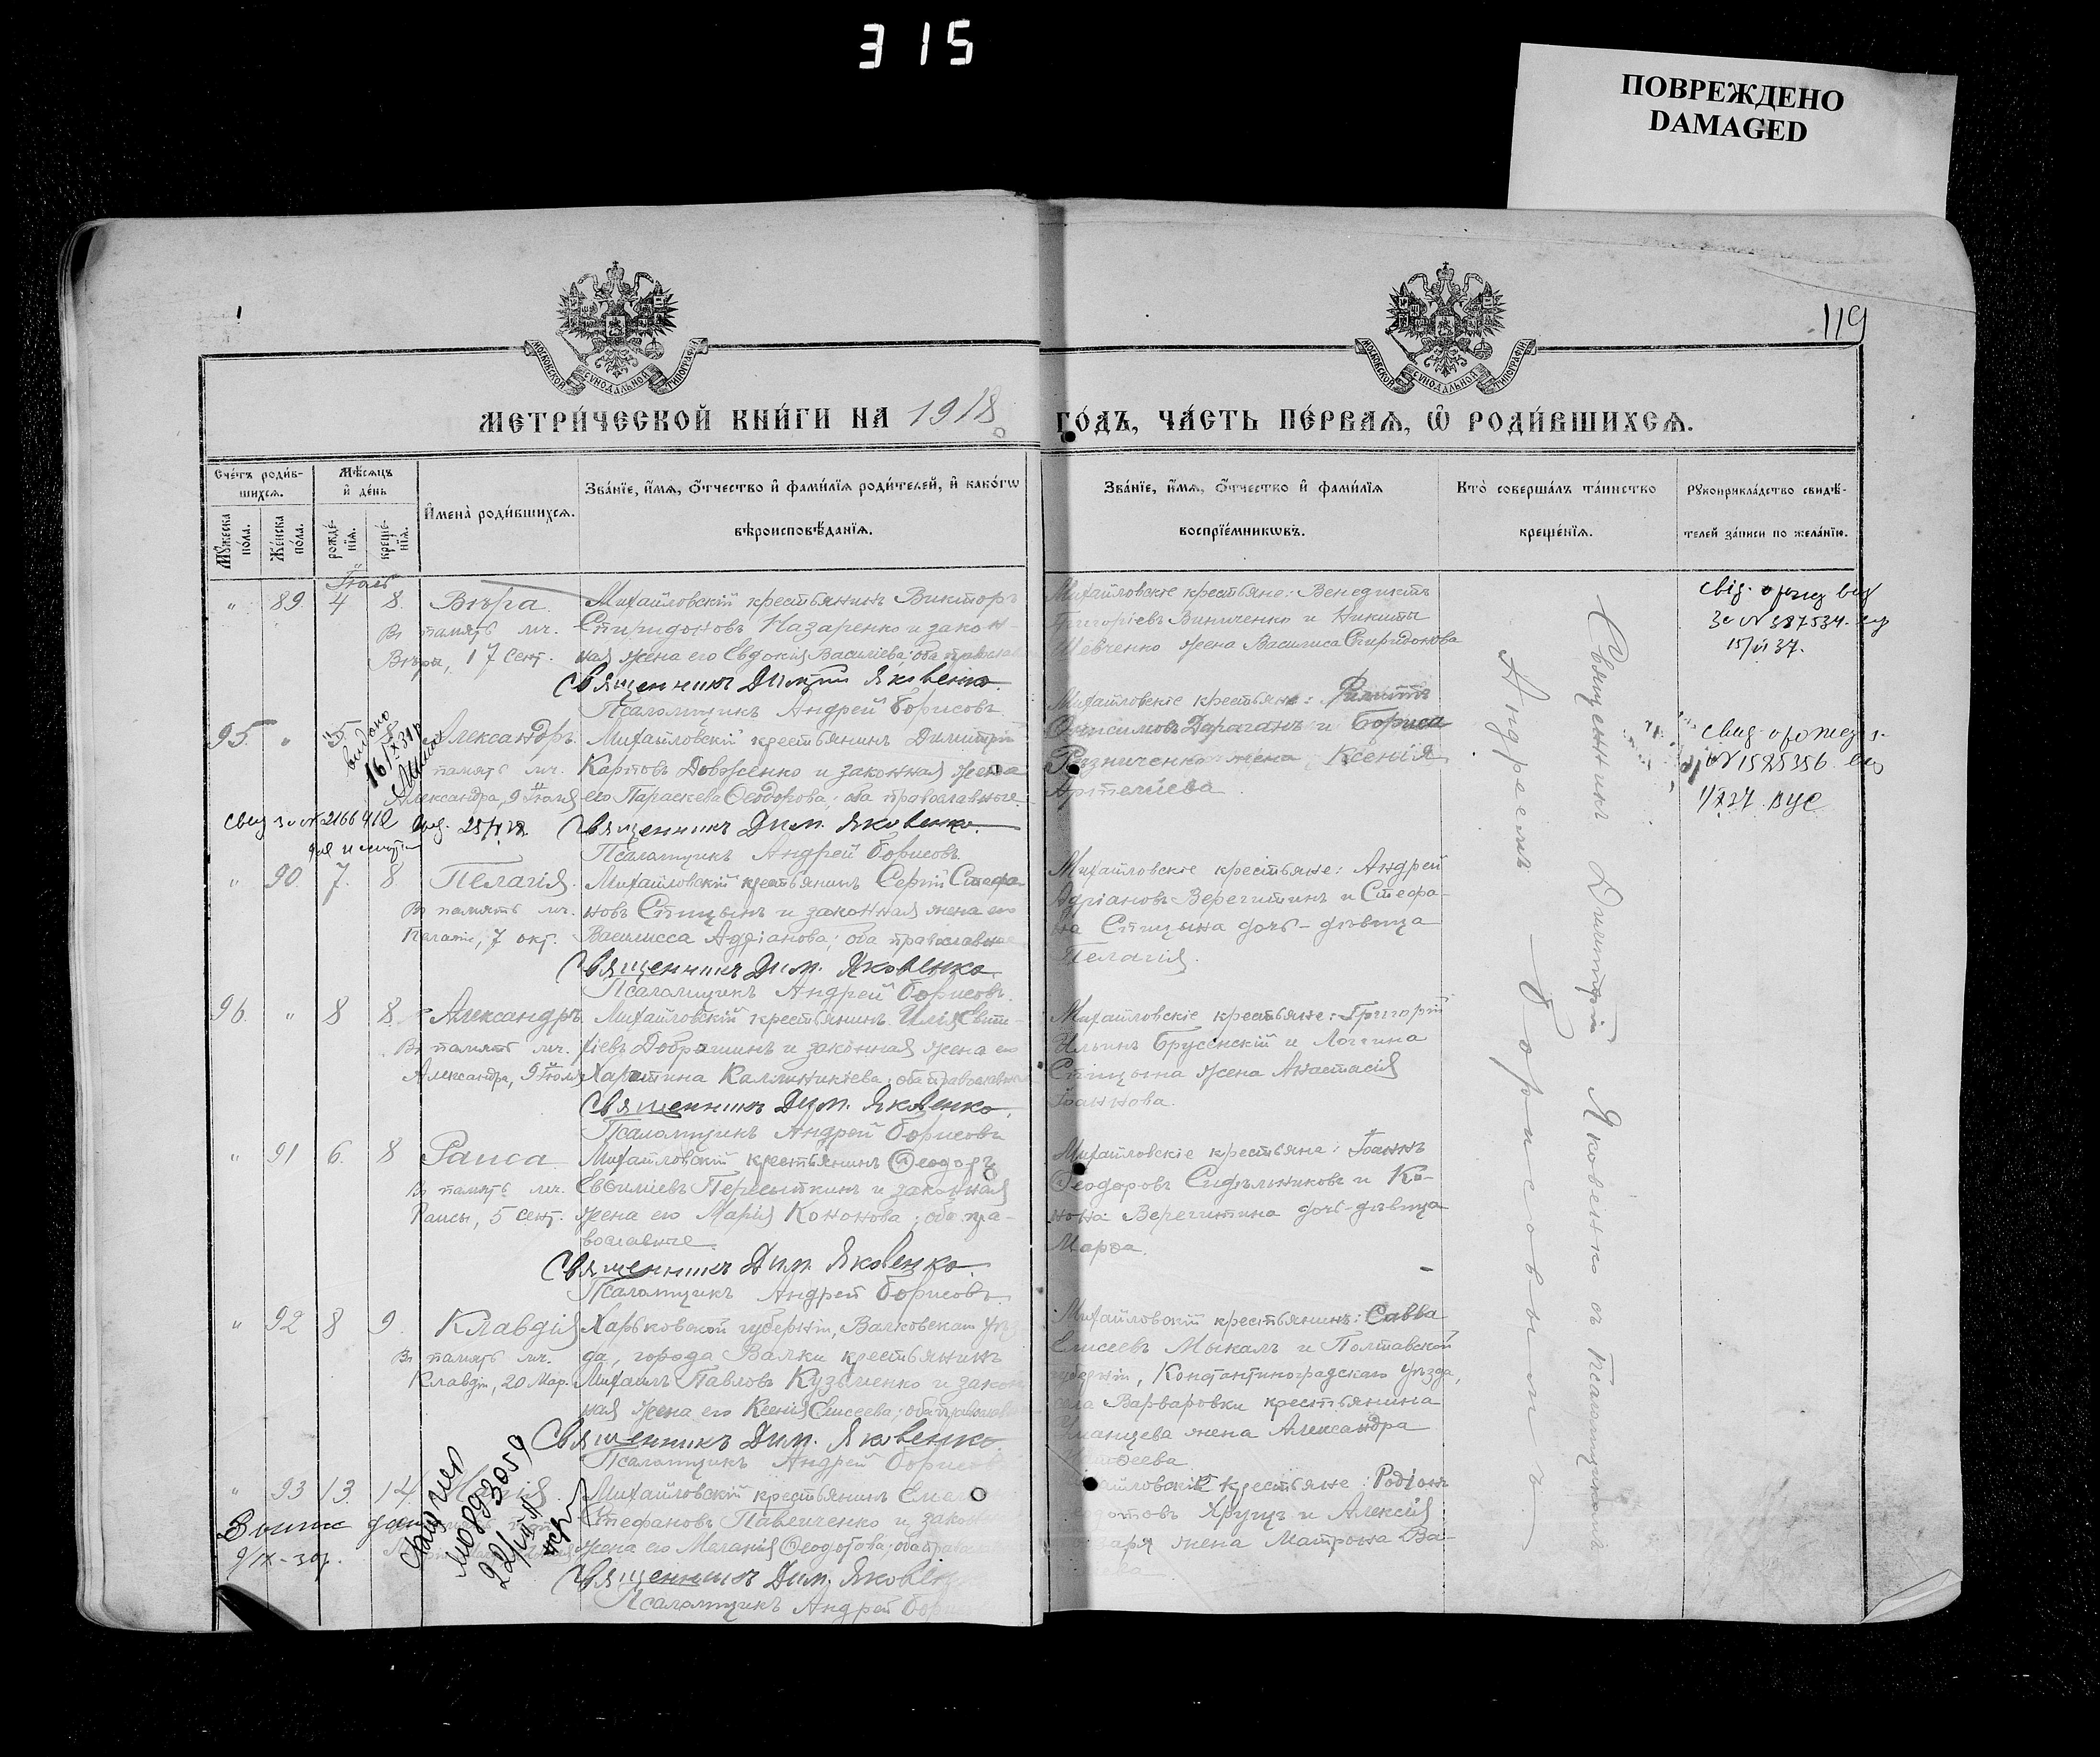 315
ПОВРЕЖДЕНО
DAMAGED
119
МОСКОВСКОЙ СѴНОДАЛЬНОЙ ТИПОГРАФІИ
МОСКОВСКОЙ СѴНОДАЛЬНОЙ ТИПОГРАФІИ
МЕТРИ́ЧЕСКОЙ КНИ́ГИ НА 1918 ГО́ДЪ, ЧА́СТЬ ПЕ́РВАѦ, Ѡ҆ РОДИ́ВШИХСѦ.
Сче́тъ роди́в-
шихсѧ.
Мꙋжеска по́ла.
Же́нска по́ла.
Мѣ́сѧцъ
и҆ де́нь
рожде́-
нїѧ.
креще́-
нїѧ.
И҆мена̀ роди́вшихсѧ.
Зва́нїе, и҆́мѧ, ѻ҆́тчество и҆ фами́лїѧ роди́телей, и҆ како́гѡ
вѣроисповѣ́данїѧ.
Зва́нїе, и҆́мѧ, ѻ҆́тчество и҆ фами́лїѧ
воспрїе́мникѡвъ.
Кто̀ соверша́лъ та́инство
креще́нїѧ.
Рꙋкоприкла́дство свидѣ́-
телей за́писи по жела́нїю.
Іюль
" 89 4 8. Вѣра
Въ память мч.
Вѣры, 17 сент.
Михайловскій крестьянинъ Викторъ
Спиридоновъ Назаренко и закон-
ная жена его Евдокія Василіева; оба православ
Священникъ Димитрій Яковенко.
Псаломщикъ Андрей Борисовъ.
Михайловскіе крестьяне: Венедиктъ
Григоріевъ Виниченко и Никиты
Шевченко жена Василиса Спиридонова
15/VI 37.
95. " 5 8 Александръ.
память мч.
Александра, 9 Іюля
Михайловскій крестьянинъ Димитрій
Карповъ Довженко и законная жена
его Параскева Ѳеодорова; оба православные.
Священникъ Дим. Яковенко
Псаломщикъ Андрей Борисовъ.
Михайловскіе крестьяне: Филиппъ
Онисимовъ Дараганъ и Бориса
Резниченко жена Ксенія
Артеміева
№ 1525356
2166412
" 90. 7. 8 Пелагія.
Въ память мч.
Пелагіи, 7 окт.
Михайловскій крестьянинъ Сергій Стефа-
новъ Спицынъ и законная жена его
Василисса Адріанова; оба православные
Священникъ Дим. Яковенко
Псаломщикъ Андрей Борисовъ.
Михайловскіе крестьяне: Андрей
Адріановъ Веретитинъ и Стефа-
на Спицына дочь-дѣвица
Пелагія.
96. " 8 8. Александръ
Въ память мч.
Александра, 9 Іюля
Михайловскій крестьянинъ Илія
Добрашинъ и законная жена его
Харитина Каллиникіева; оба православн
Священникъ Дим. Яковенко.
Псаломщикъ Андрей Борисовъ
Михайловскіе крестьяне: Григорій
Ильинъ Брусенскій и Логгина
Спицына жена Анастасія
Іоаннова.
" 91 6. 8 Раиса
Въ память мч.
Раисы, 5 сент.
Михайловскій крестьянинъ Ѳеодоръ
Евѳиміевъ Пересыпкинъ и законная
жена его Марія Кононова; оба пра-
вославные.
Священникъ Дим. Яковенко.
Псаломщикъ Андрей Борисовъ.
Михайловскіе крестьяне: Іоаннъ
Ѳеодоровъ Сидѣльниковъ и Ко-
нона Веретитина дочь-дѣвица
Марѳа.
" 92 8 9. Клавдія
Въ память мч.
Клавдіи, 20 Мар.
Харьковской губерніи, Валковскаго уѣз
да, города Валки крестьянинъ
Михаилъ Павловъ Кузьменко и закон
ная жена его Ксенія Елисеева; оба православ
Священникъ Дим. Яковенко.
Псаломщикъ Андрей Борисов
Михайловскій крестьянинъ: Савва
Елисеевъ Мыкалъ и Полтавской
губерніи, Константиноградскаго уѣзда,
села Варваровки крестьянина
жена Александра
" 93 13. 14.
Михайловскій крестьянинъ
Стефановъ Павличенко и зако
жена его Меланія Ѳеодотова; оба правосл
Священникъ Дим. Яковенк
Псаломщикъ Андрей Бори
крестьяне: Родіонъ
Хрущъ и Алексія
жена Матрона Ва-
9/IX-30г.
Священникъ Димитрій Яковенко съ псаломщикомъ
Андреемъ Борисовымъ